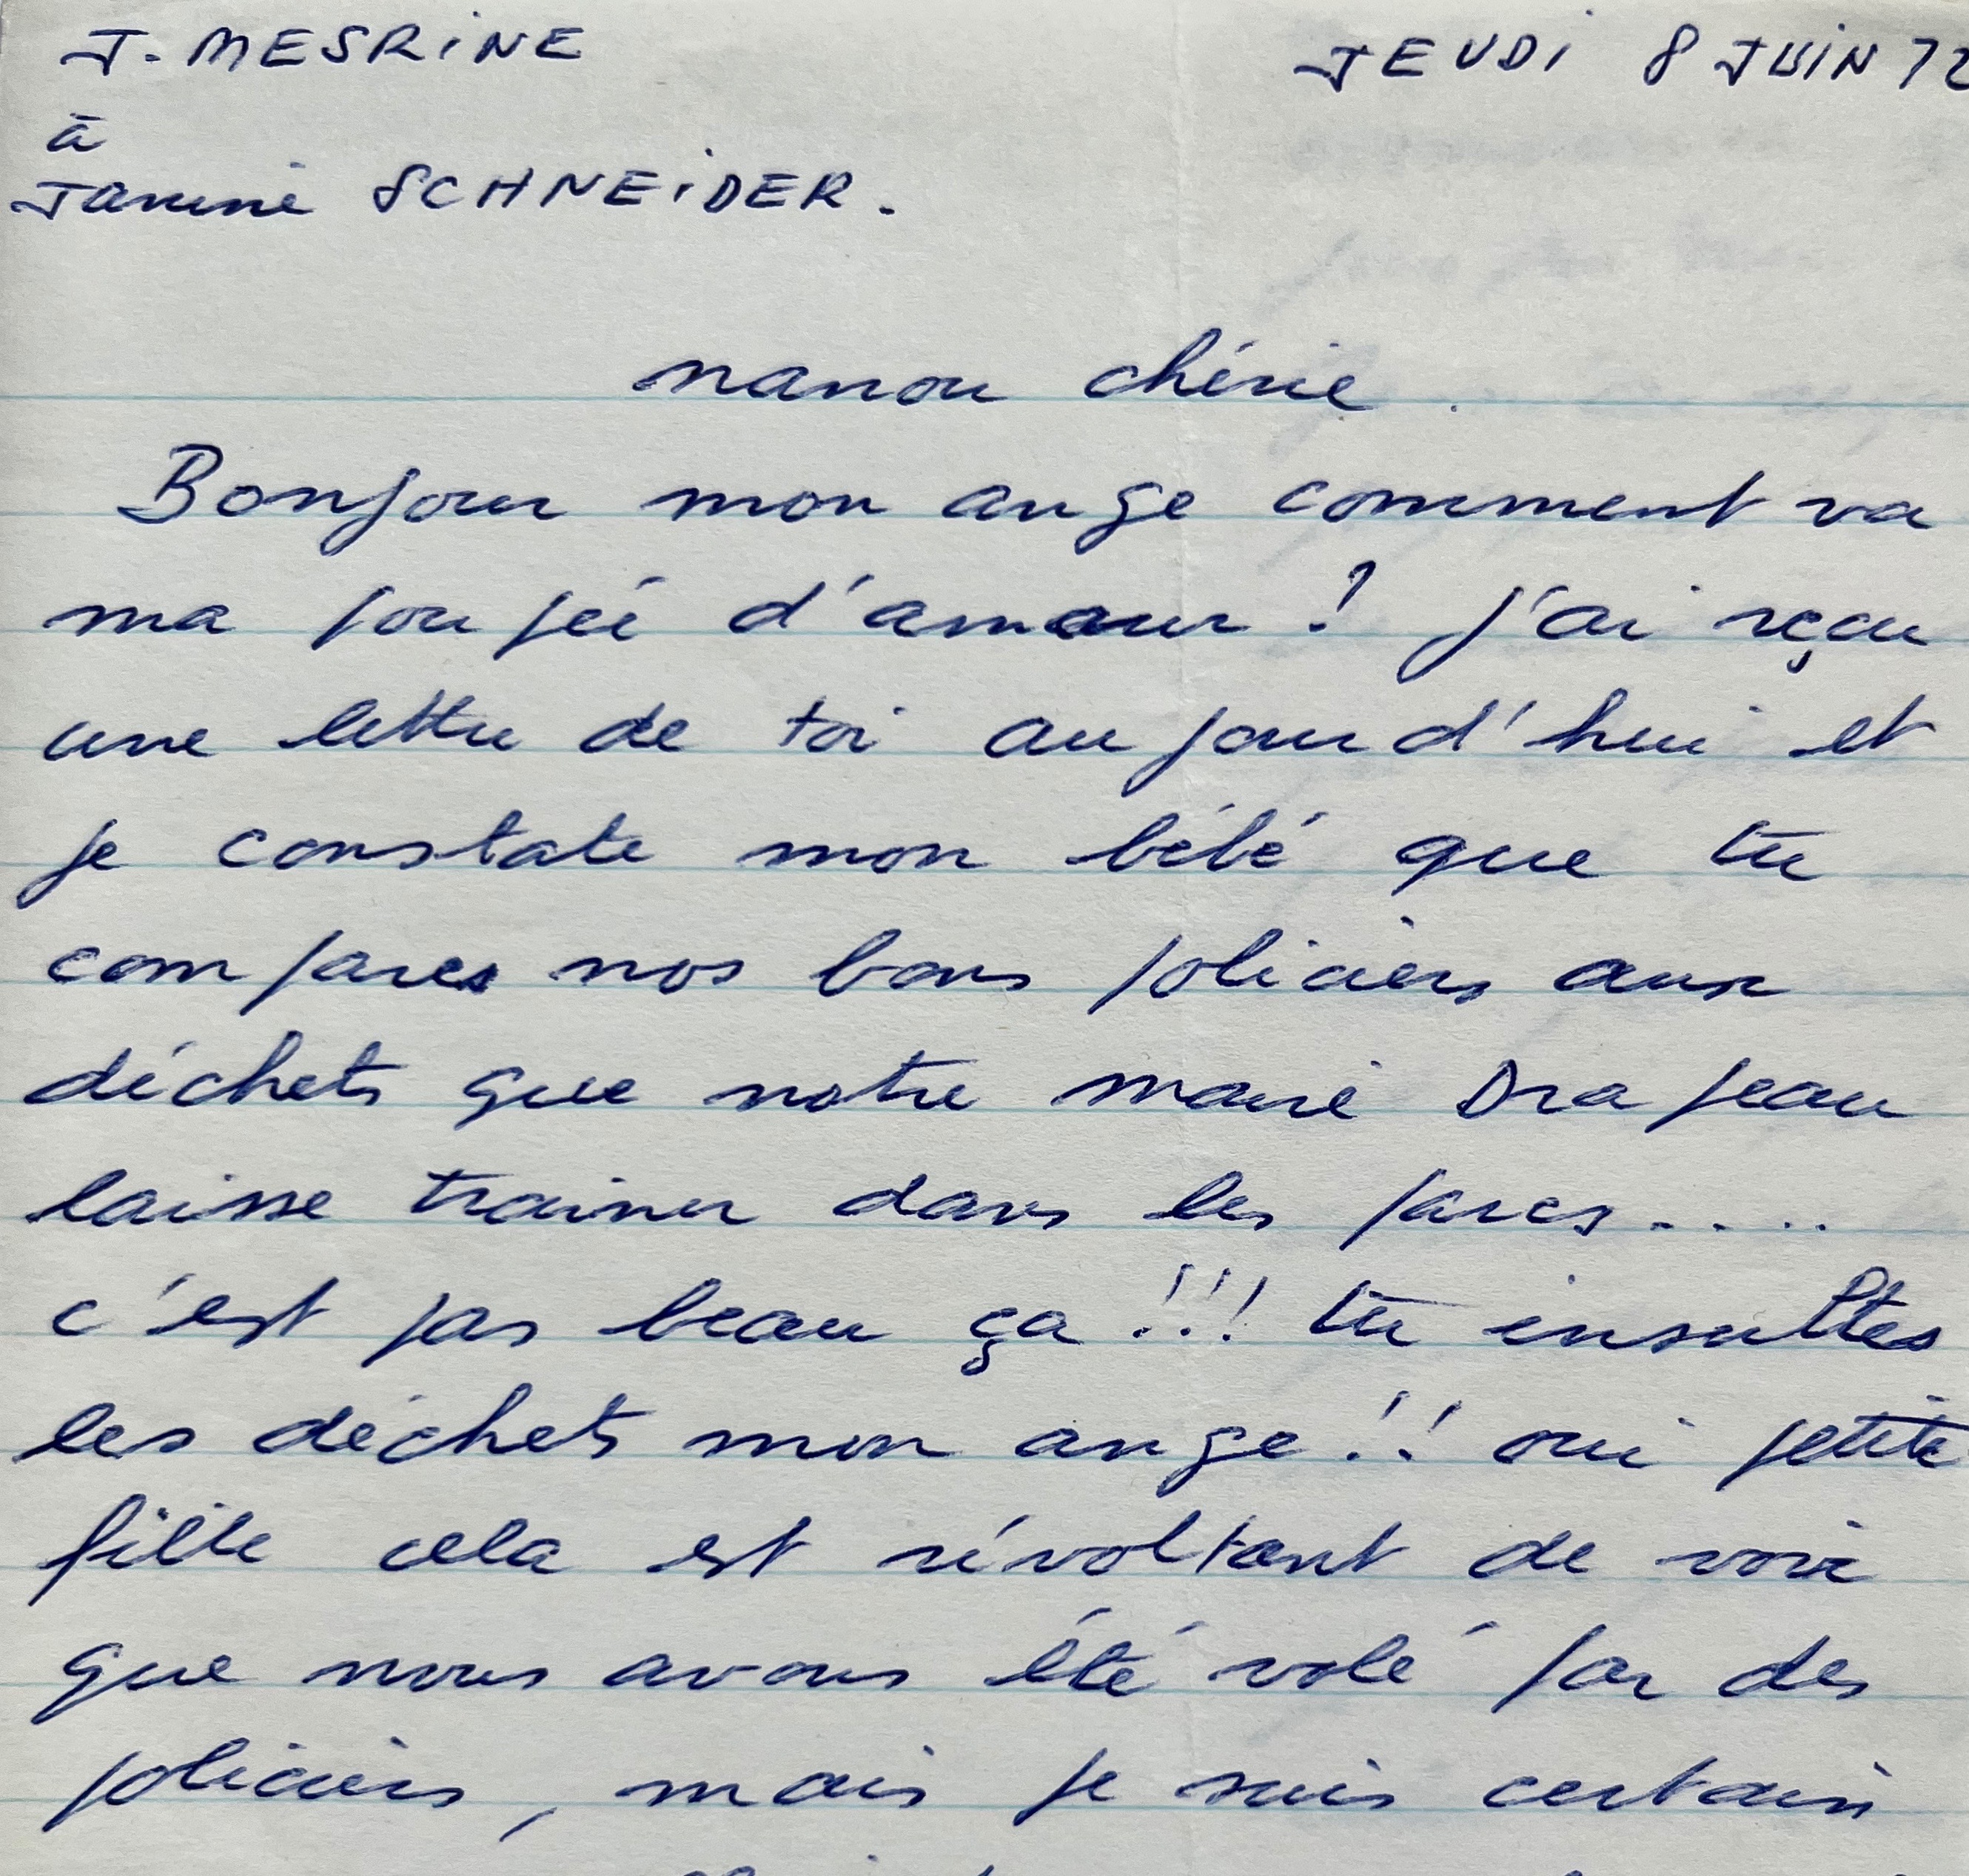 J. MESRINE
JEUDI 8 JUIN 72
à
Janine SCHNEIDER.
nanou chérie.
Bonjour mon ange comment va
ma poupée d'amour ? j'ai reçu
une lettre de toi aujourd'hui et
je constate mon bébé que tu
compares nos bons policiers aux
déchets que notre maire Drapeau
laisse trainer dans les parcs....
c'est pas beau ça !!! tu insultes
les déchets mon ange !! oui petite
fille cela est révoltant de voir
que nous avons été volé par des
policiers, mais je suis certain